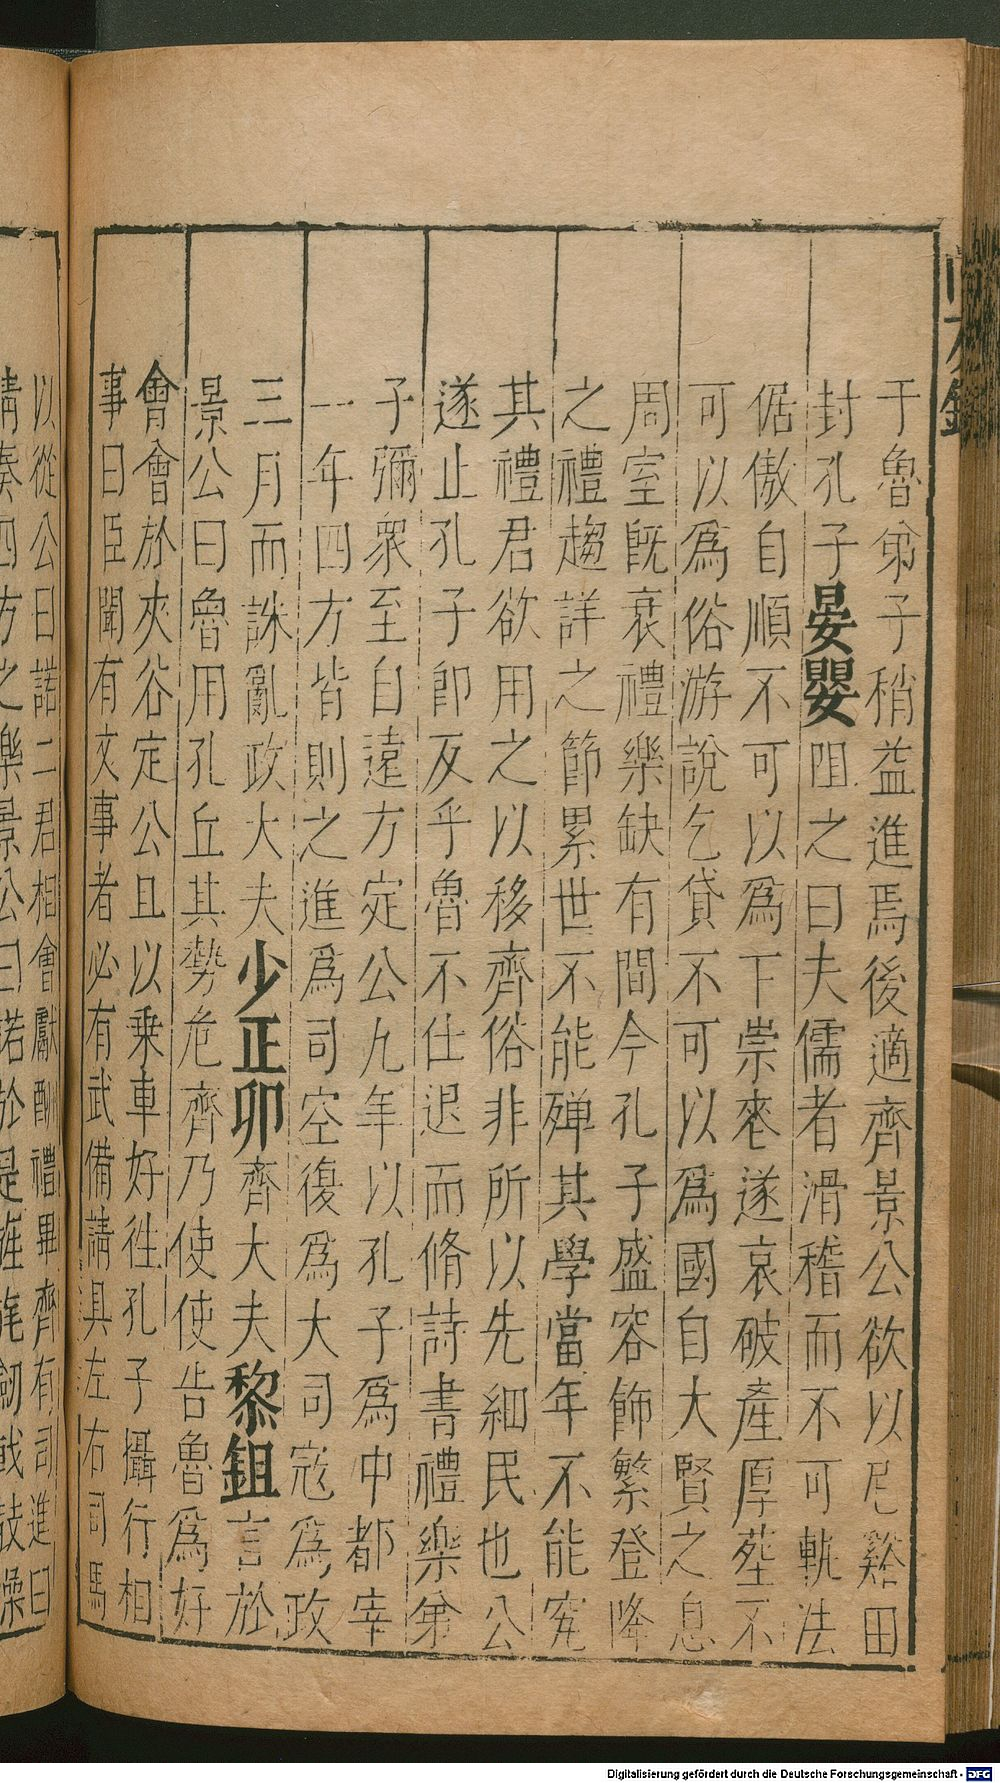 于魯弟子稍益進焉後適齊景公欲以尼谿田
封孔子晏嬰阻之曰夫儒者滑稽而不可軌法
倨傲自順不可以爲下崇喪遂哀破產厚葬不
可以爲俗游說乞貸不可以爲國自大賢之息
周室旣衰禮樂缺有間今孔子盛容飾繁登降
之禮趨詳之節累世不能殫其學當年不能究
其禮君欲用之以移齊俗非所以先細民也公
遂止孔子卽反乎魯不仕退而脩詩書禮樂弟
子彌衆至自遠方定公九年以孔子爲中都宰
一年四方皆則之進爲司空復爲大司寇爲政
三月而誅亂政大夫少正卯齊大夫黎鉏言於
景公曰魯用孔丘其勢危齊乃使使告魯爲好
會會於夾谷定公且以乗車好徃孔子攝行相
事曰臣聞有文事者必有武備請具左右司馬
以從公曰諾二君相會獻酬禮畢齊有司進曰
請奏四方之樂景公曰諾於是旌旄劒戟鼓譟
Digitalisierung gefördert durch die Deutsche Forschungsgemeinschaft - DFG